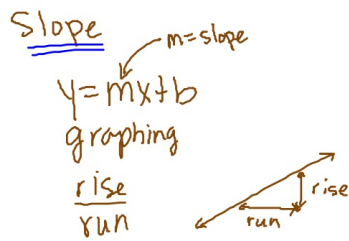 Slope
m=slope
y=mx+b
graphing
rise
run
rise
run